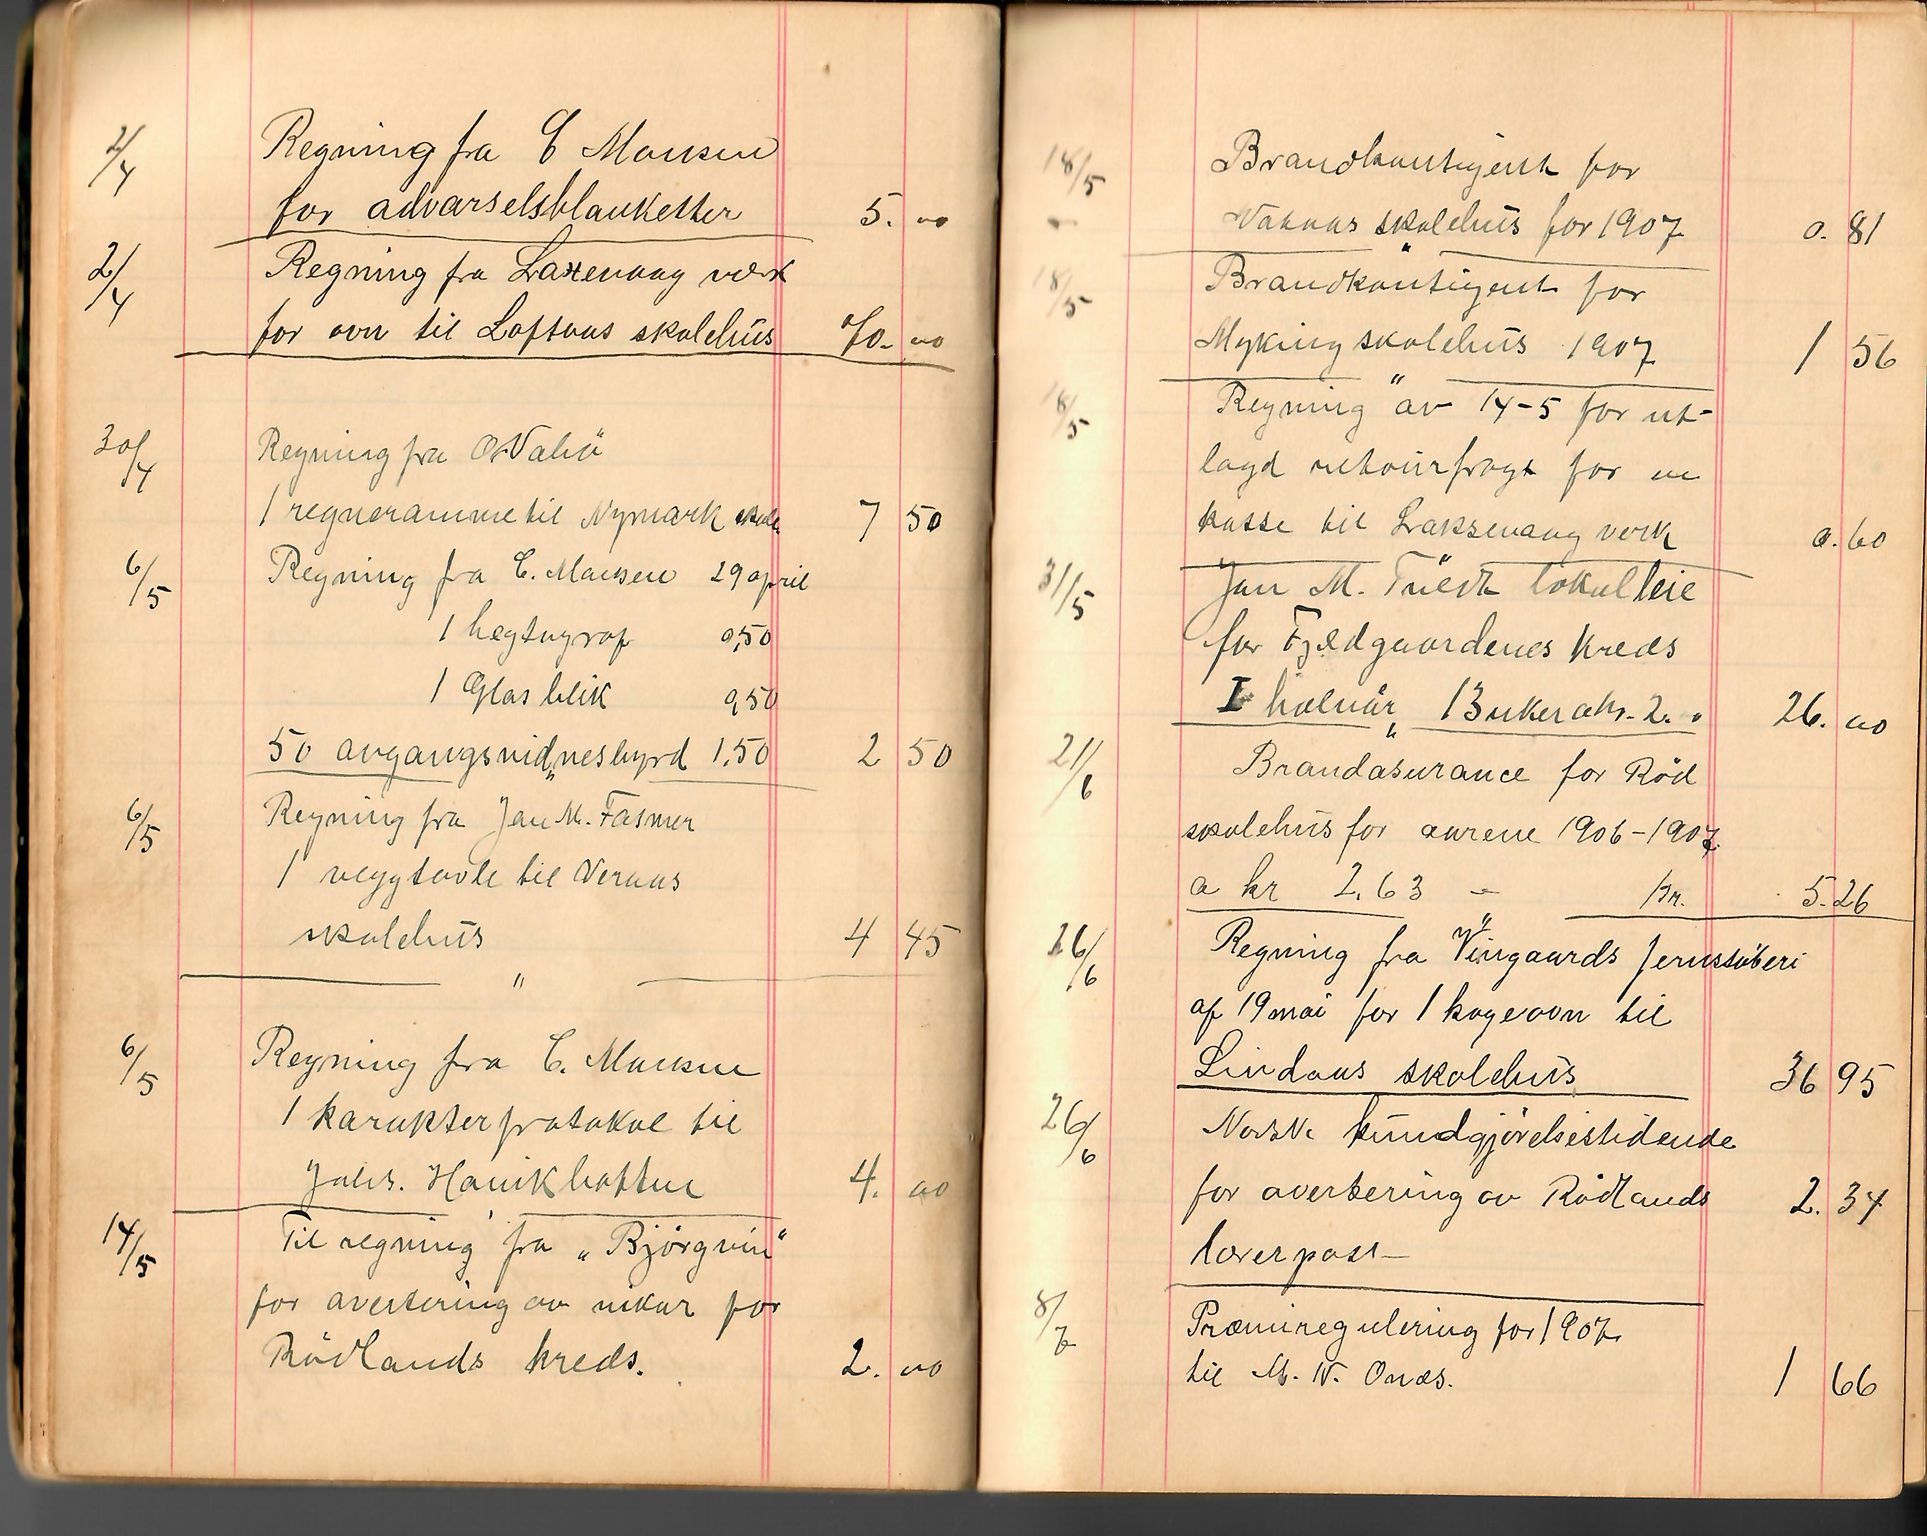 2/4 Regning fra C Monsen
for advarselsblanketter 5. 00
2/4 Regning fra Laxevaag værk
for ovn til Loftaas skolehus 40. 00
30/4 Regning fra O Valvö
1 regneramme til Nymark skole 7 50
6/5 Regning fra C. Monsen 29 april
1 hegtograf 0,50
1 Glas blæk 0,50
50 avgangsvidnesbyrd 1,50 2 50
6/5 Regning fra Jan M. Fasmer
1 veggtavle til Veraas
skolehus 4 45
"
6/5 Regning fra C. Monsen
1 karakterprotokol til
Johs. Hauikhatten 4. 00
14/5 Til regning fra „Björgvin"
for avertering av vikar for
Rödlands kreds. 2. 00
18/5 Brandkontigent for
skolehus for 1907 0. 81
18/5 Brandkontigent for
Myking skolehus 1907 1 56
18/5 Regning av 14-5 for ut-
lagd retourfragt for en
kasse til Laksevaag verk 0. 60
31/5 Jan M. lokalleie
for Fjeldgaardenes kreds
I halvår 13 uker a kr. 2. 26. 00
21/6 Brandasurance for Röd
skolehus for aarene 1906-1907
a kr 2.63 - Kr. 5.26
26/6 Regning fra Vingaards Jernstöberi
af 19 mai for 1 kogeovn til
Lindaas skolehus 36 95
26/6 Norsk kundgjörelsestidende
for avertering av Rödlands 2. 34
lærerpost
8/7 Præmiregulering for 1907
til M. N. Onæs. 1 66